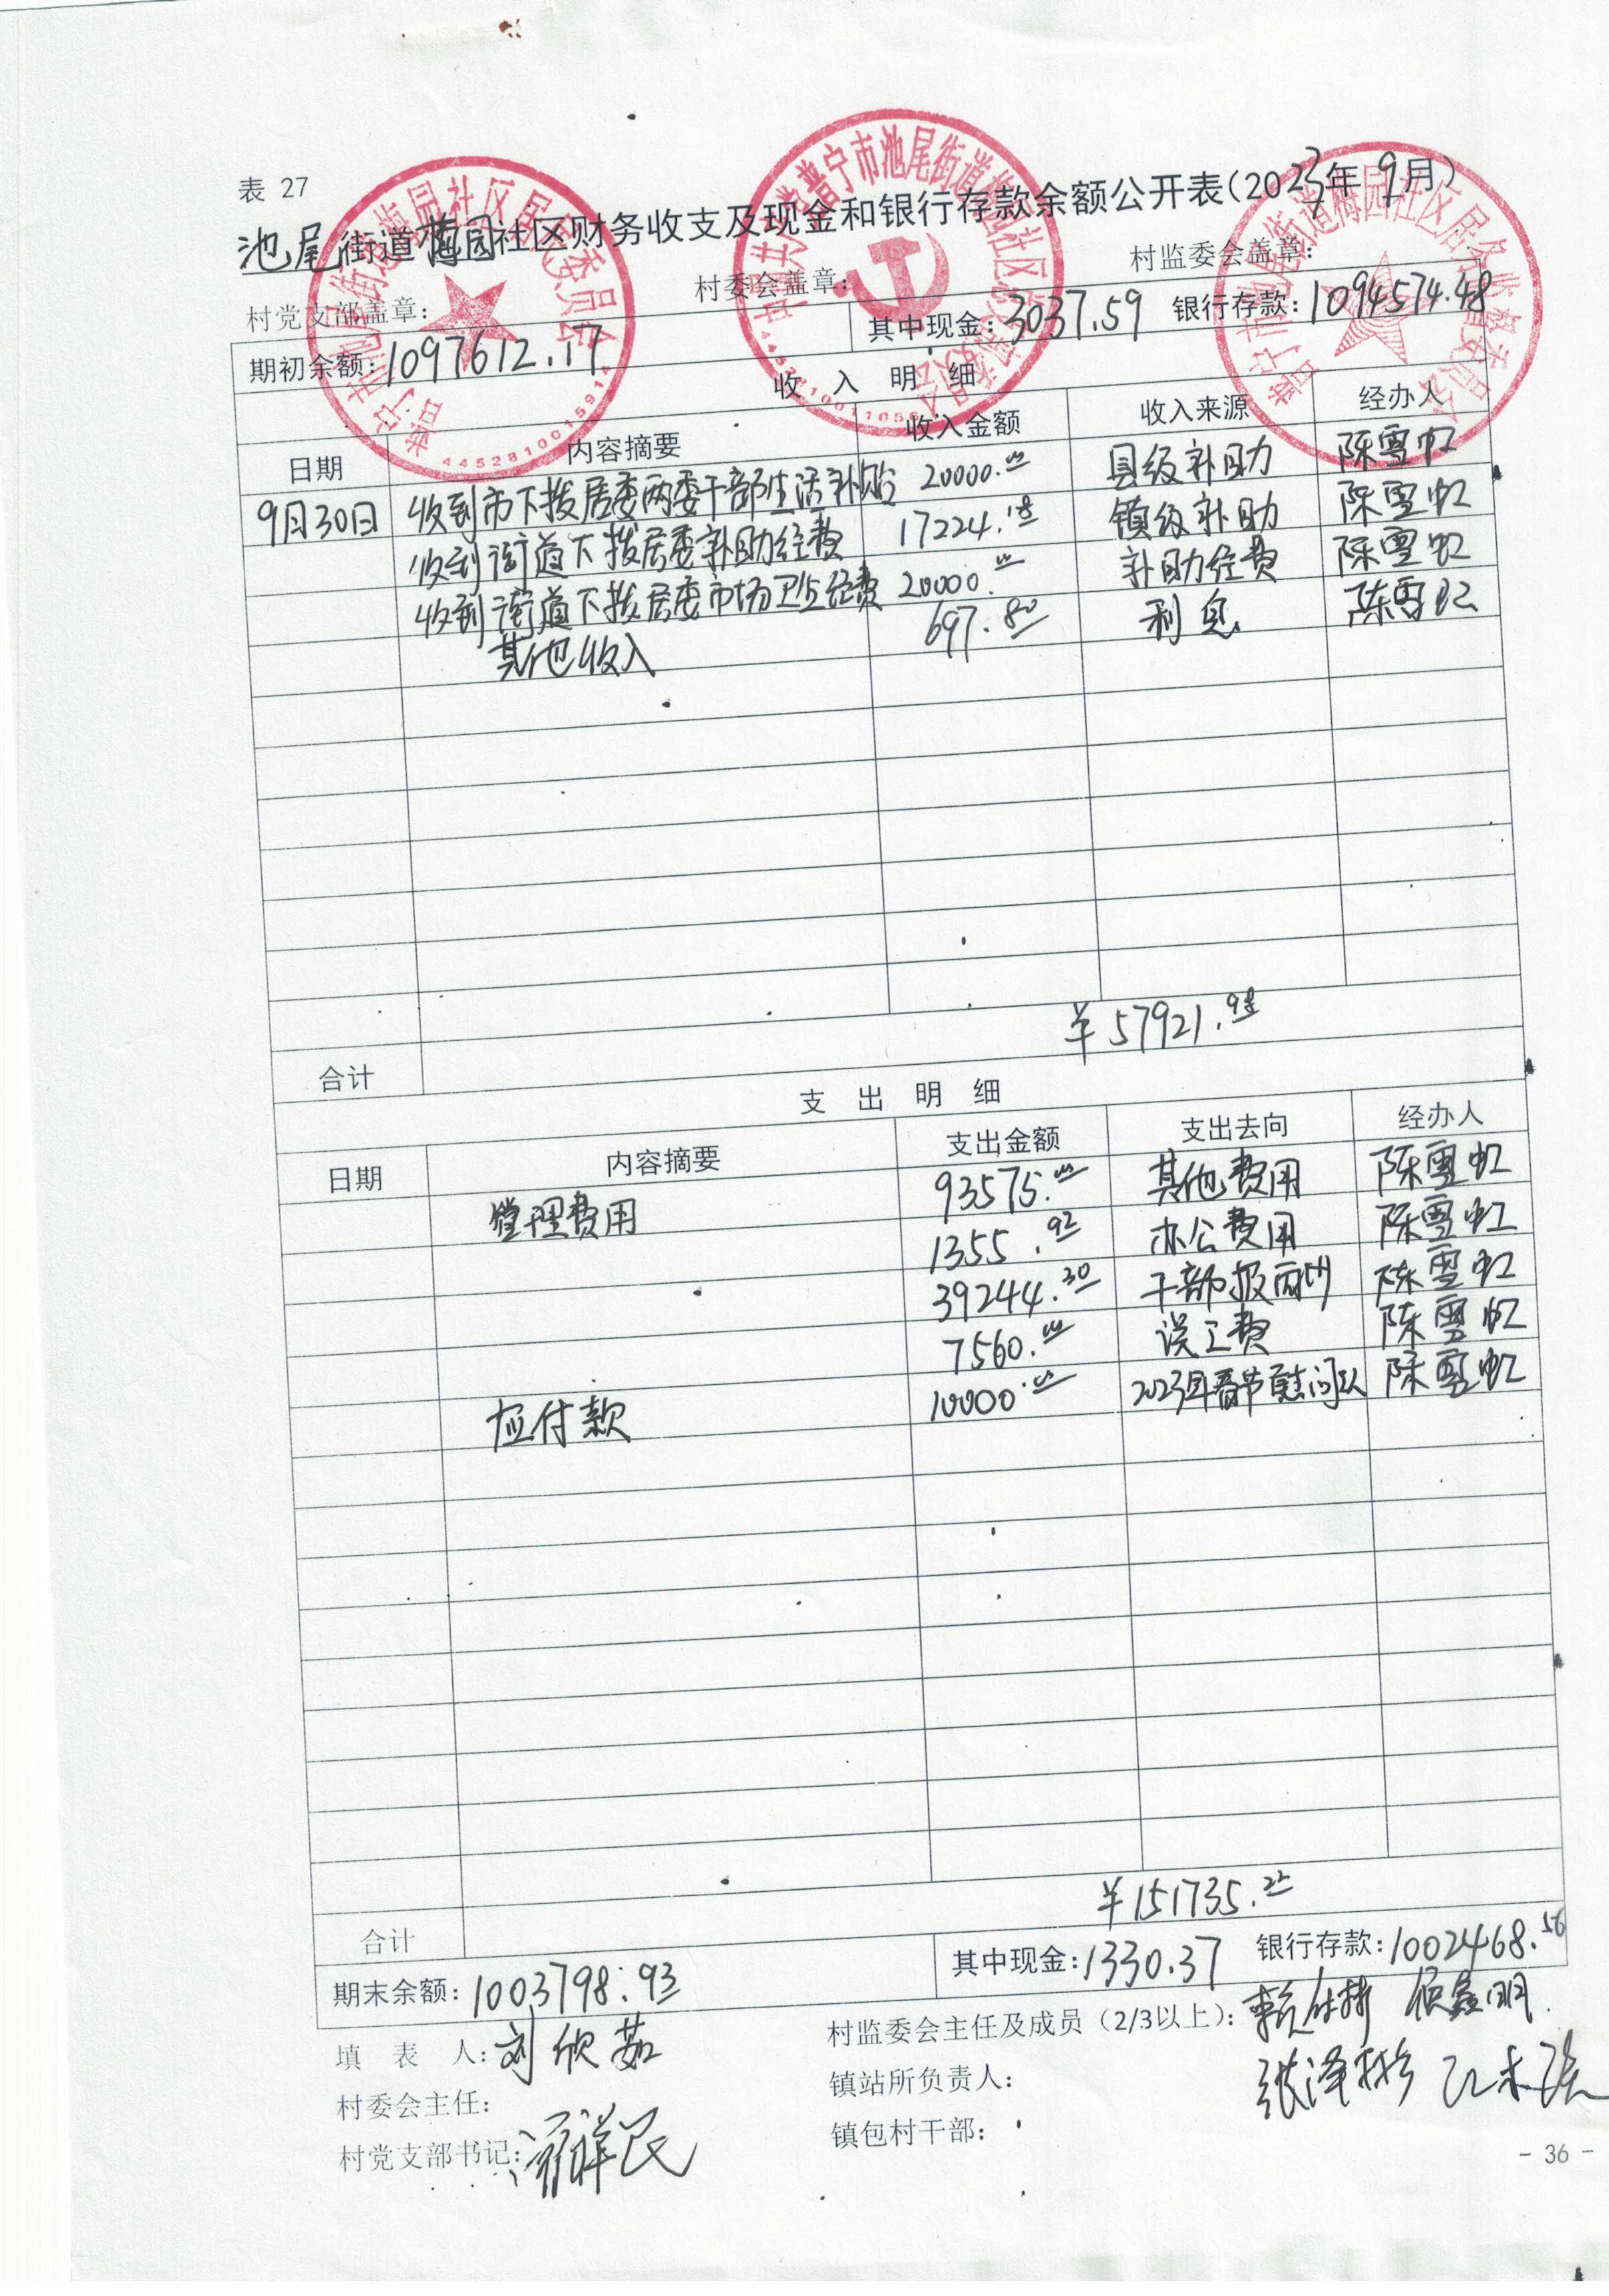 表 27
池尾街道梅园社区财务收支及现金和银行存款余额公开表(2023年9月)
村党支部盖章: 村委会盖章: 村监委会盖章:
期初余额:1097612.17 其中现金:3037.59 银行存款:1094574.48
收 入 明 细
日期 内容摘要 收入金额 收入来源 经办人
9月30日 收到市下拨居委两委干部生活补贴 20000.00 县级补助 陈雪虹
收到街道下拨居委补助经费 17224.18 镇级补助 陈雪虹
收到街道下拨居委市场卫生经费 20000.00 补助经费 陈雪虹
其他收入 697.80 利息 陈雪虹
合计 ¥57921.98
支 出 明 细
日期 内容摘要 支出金额 支出去向 经办人
管理费用 93575.00 其他费用 陈雪虹
1355.92 办公费用 陈雪虹
39244.30 干部报酬 陈雪虹
7560.00 误工费 陈雪虹
应付款 10000.00 2023年春节慰问 陈雪虹
合计 ¥151735.22
期末余额:1003798.93 其中现金:1330.37 银行存款:1002468.56
填 表 人:刘欣茹 村监委会主任及成员(2/3以上):
张泽彬
村委会主任: 镇站所负责人:
村党支部书记: 镇包村干部:
- 36 -
普宁市池尾街道梅园社区居民委员会
4452810015914
中国共产党普宁市池尾街道梅园社区委员会
普宁市池尾街道梅园社区居务监督委员会